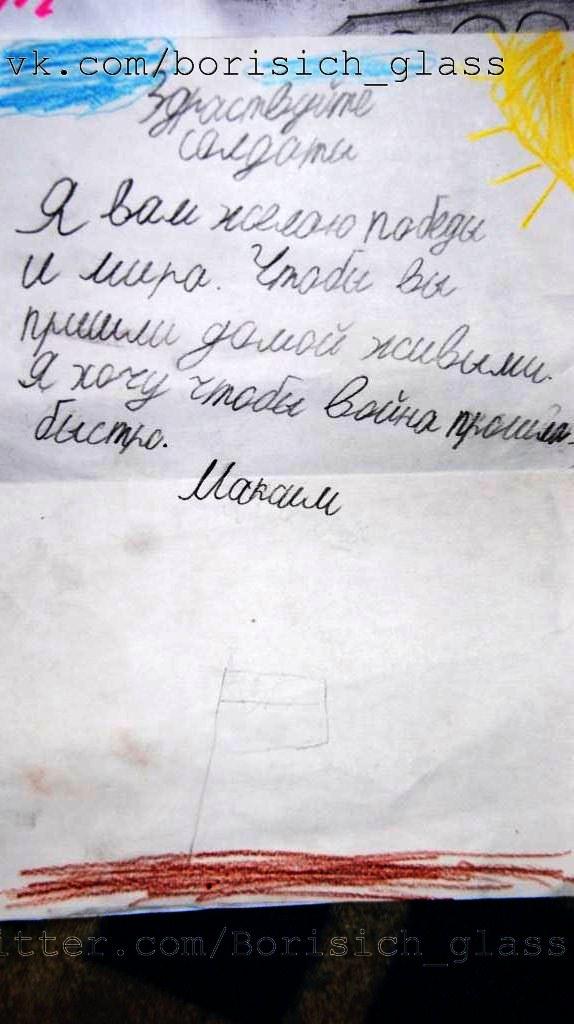 vk.com/borisich_glass
Здраствуйте
солдаты
Я вам желаю победы
и мира. Чтобы вы
пришли домой живыми.
Я хочу чтобы война прошла
быстро.
Максим
itter.com/Borisich_glass